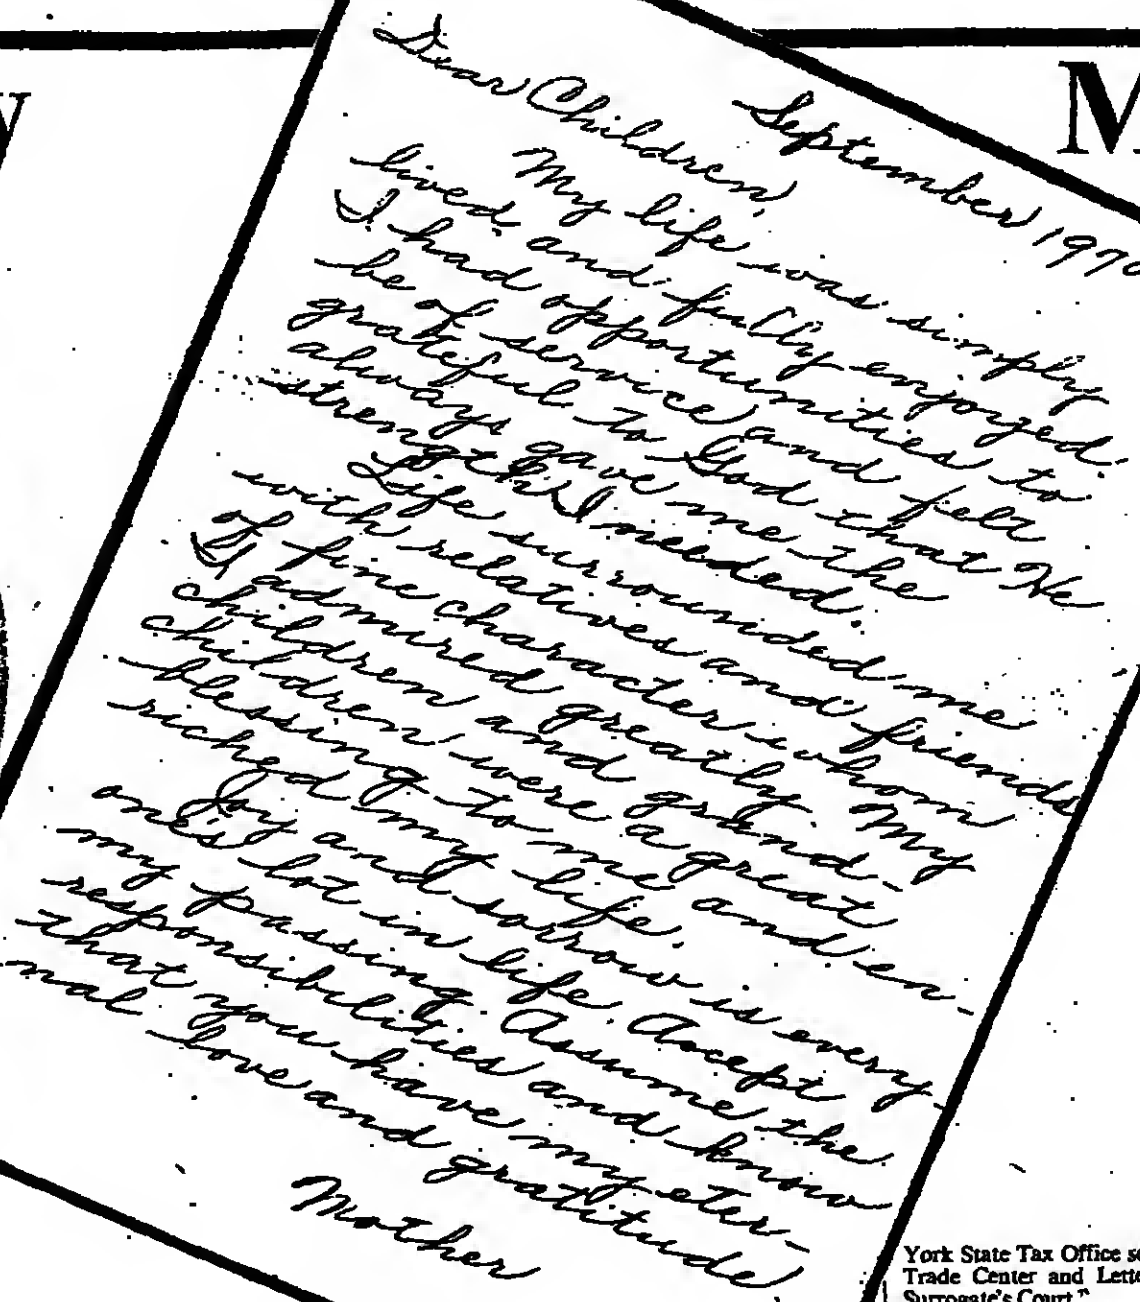 September 1970
Dear Children,
My life was simply
lived and fully enjoyed.
I had opportunities to
be of service and felt
grateful to God that He
always gave me the
strength I needed.
Life surrounded me
with relatives and friends
of fine character whom
I admired greatly. My
children and grand-
children were a great
blessing to me and en-
riched my life.
Joy and sorrow is every-
ones lot in life. Accept
my passing. Assume the
responsibilities and know
that you have my eter-
nal love and gratitude
Mother
M
York State Tax Office
Trade Center and
Surrogate's Court."